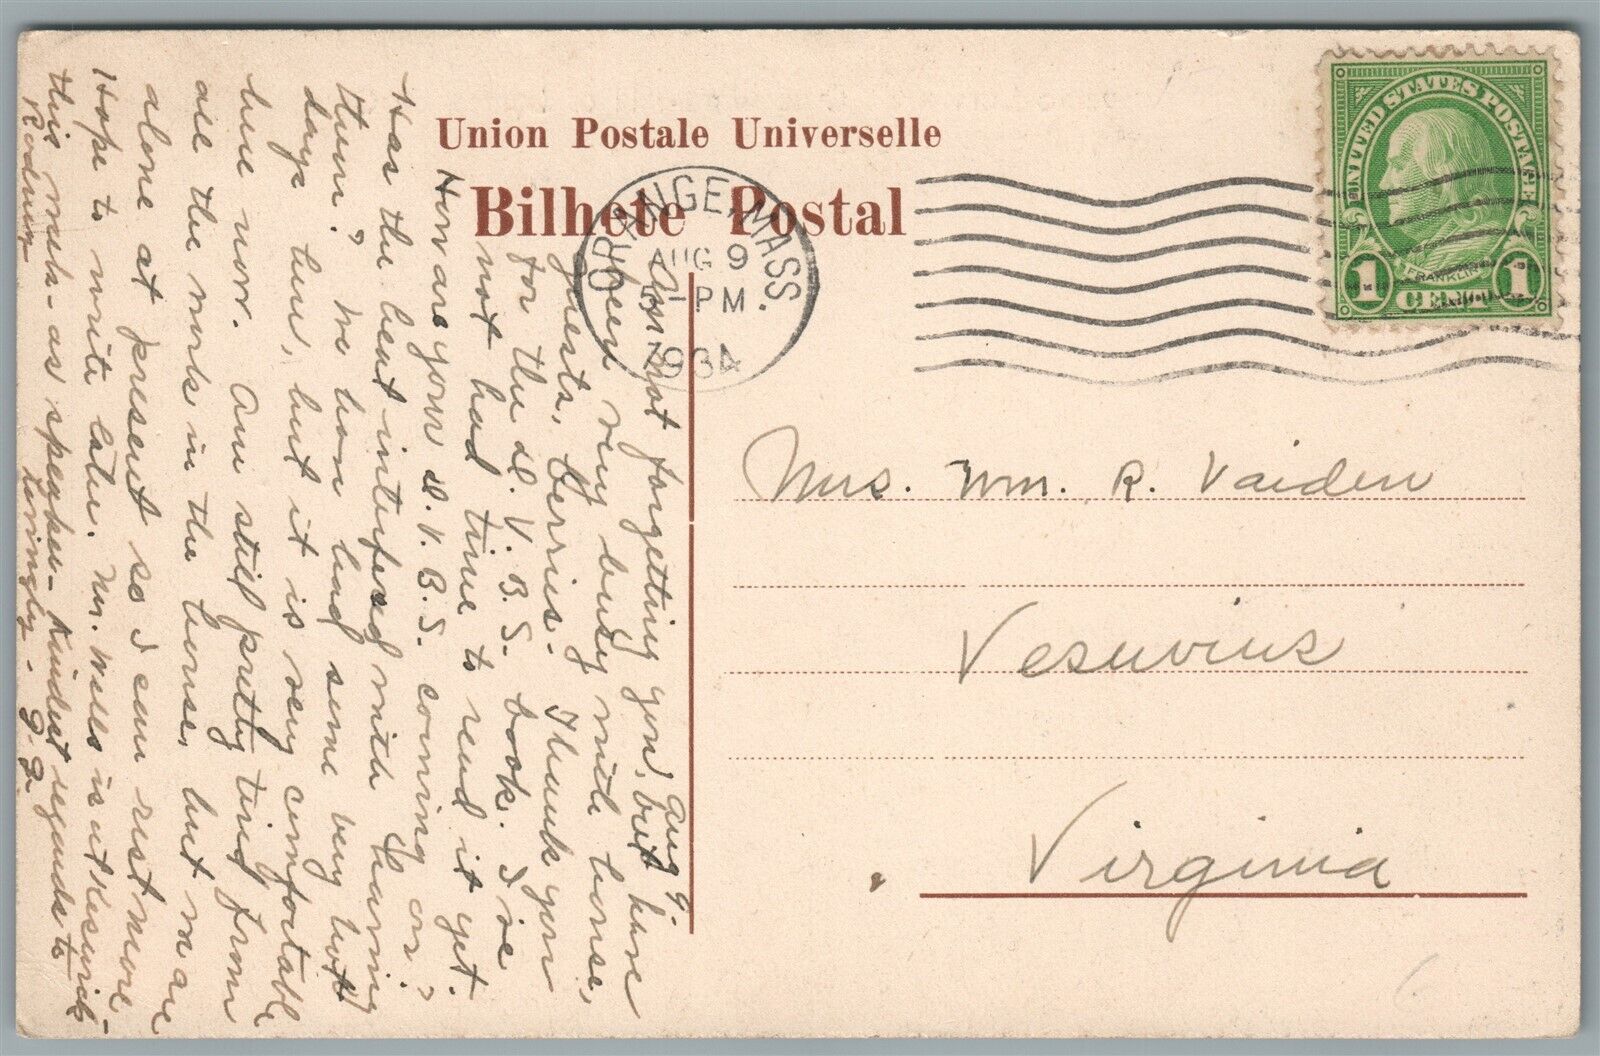 Union Postale Universelle
Bilhete Postal
ORANGE, MASS.
AUG 9
1 PM
1934
UNITED STATES POSTAGE
FRANKLIN
1 CENT 1
Mrs. Wm. R. Vaiden
Vesuvius
Virginia
Aug 9.
Am not forgetting you, but have
been very busy with house,
guests, berries. Thank you
for the D. V. B. S. book. I've
not had time to read it yet.
How are your D. V. B. S. coming on?
Has the heat interfered with having
them? We have had some very hot
days here, but it is very comfortable
here now. Am still pretty tired from
all the work in the house, but we are
alone at present so I can rest more.
Hope to write later. Mr. Wells is at
this week - as speaker - Kindest regards to
Rodney
Lovingly - G. G.